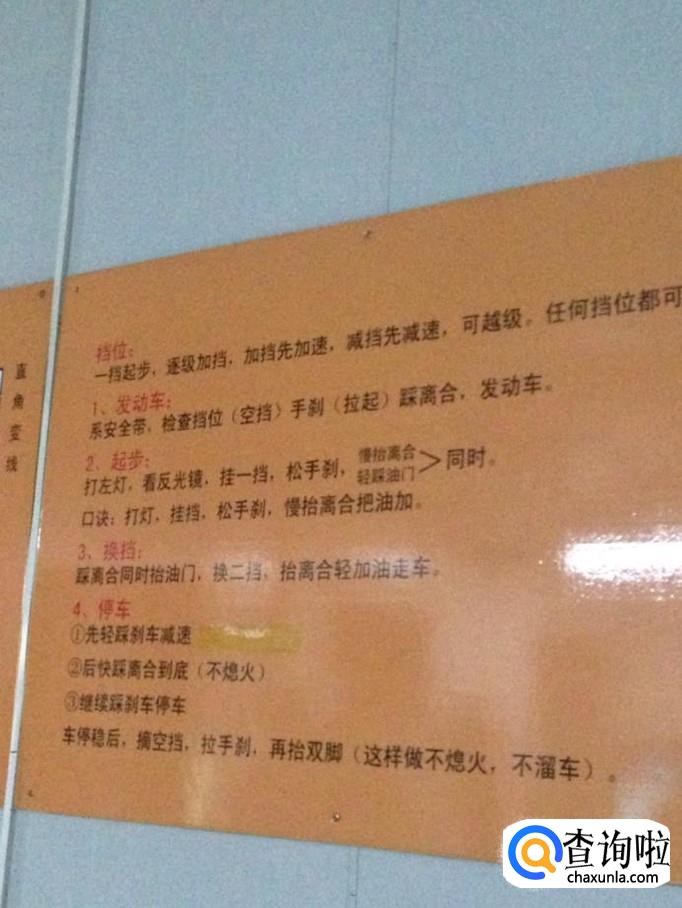 直角变线
挡位:
一挡起步，逐级加挡，加挡先加速，减挡先减速，可越级。任何挡位都可
1、发动车:
系安全带，检查挡位（空挡）手刹（拉起）踩离合，发动车。
2、起步:
打左灯，看反光镜，挂一挡，松手刹，慢抬离合 轻踩油门>同时。
口诀：打灯，挂挡，松手刹，慢抬离合把油加。
3、换挡:
踩离合同时抬油门，换二挡、抬离合轻加油走车。
4、停车
①先轻踩刹车减速
②后快踩离合到底（不熄火）
③继续踩刹车停车
车停稳后，摘空挡，拉手刹，再抬双脚（这样做不熄火，不溜车）。
查询啦
chaxunla.com